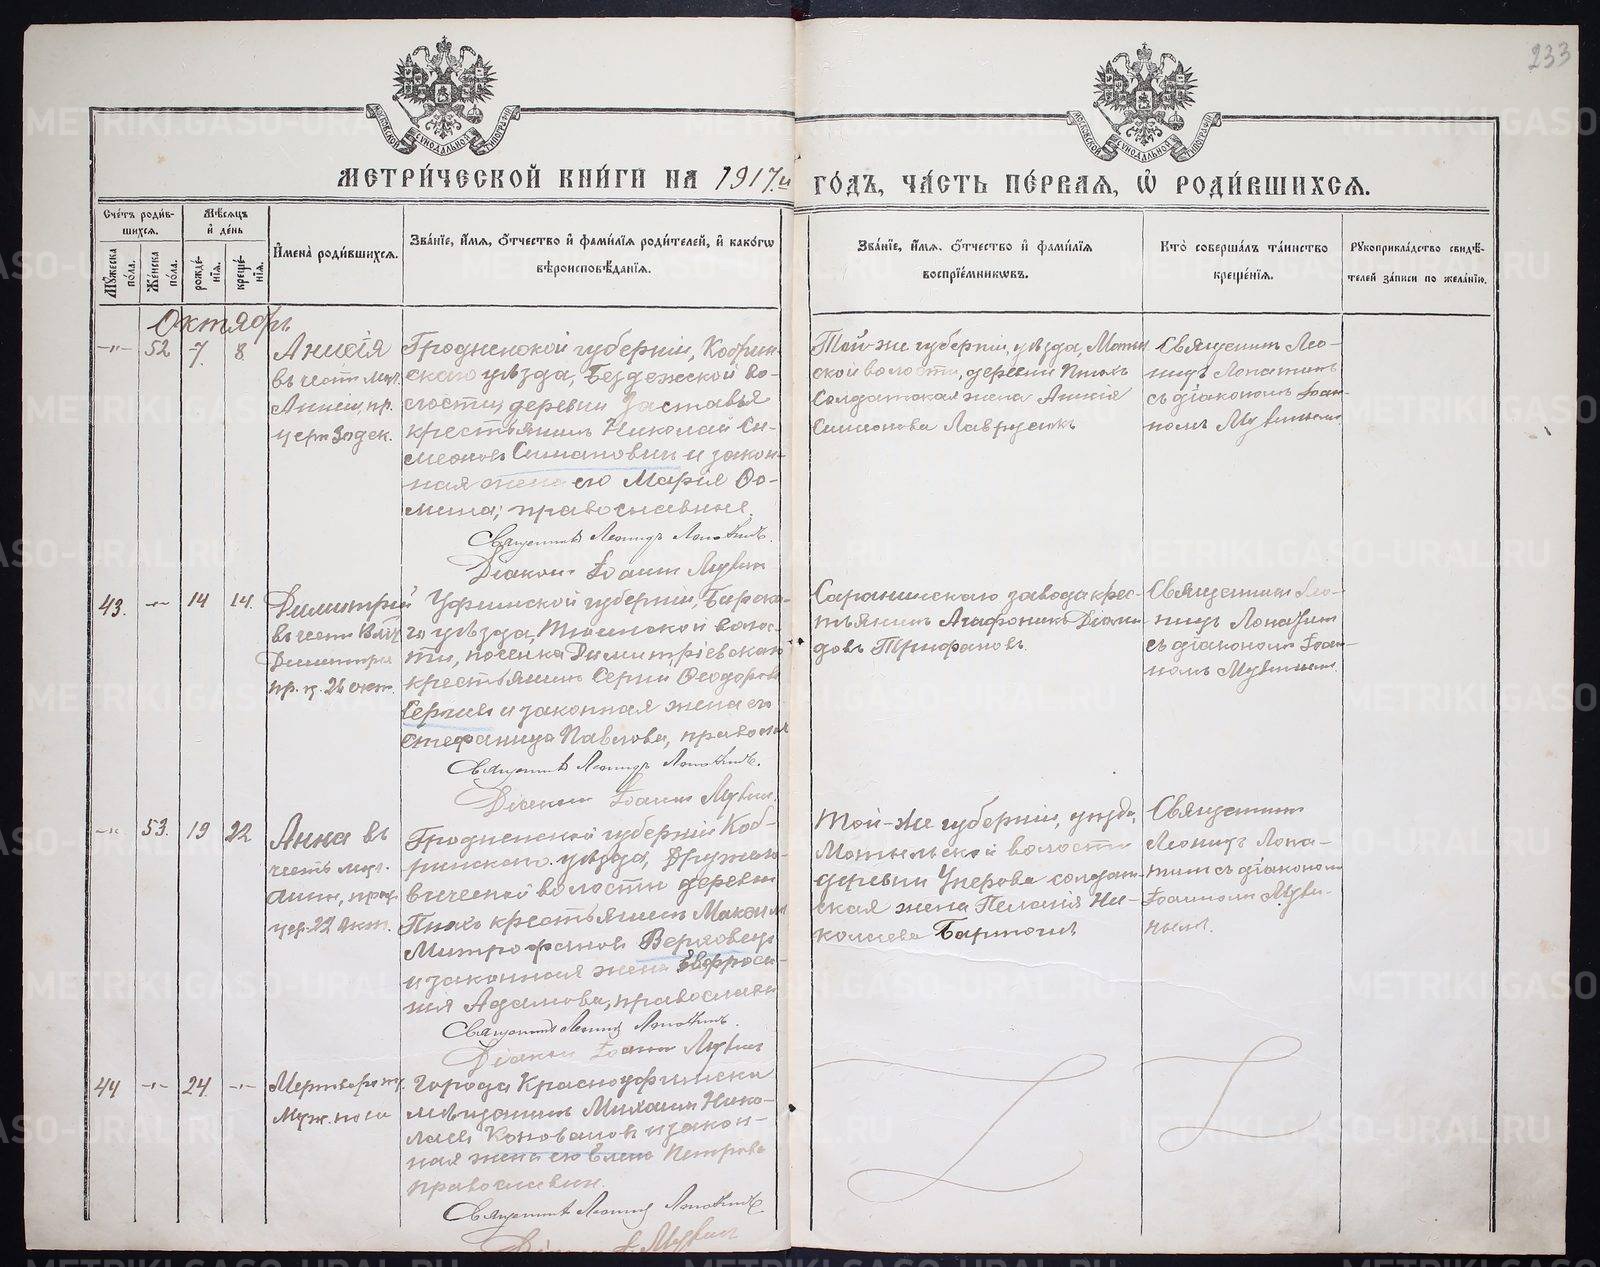 233
МОСКОВСКОЙ СУНОДАЛЬНОЙ ТИПОГРАФІИ
МОСКОВСКОЙ СУНОДАЛЬНОЙ ТИПОГРАФІИ
МЕТРИ́ЧЕСКОЙ КНИ́ГИ НА 1917.й ГО́ДЪ, ЧА́СТЬ ПЕ́РВАѦ, Ѡ҆ РОДИ́ВШИХСѦ.
Сче́тъ роди́в-
шихсѧ.
Мꙋ́жеска по́ла.
Же́нска по́ла.
Мѣ́сѧцъ
и҆ де́нь
рожде́-нїѧ.
креще́-нїѧ.
И҆мена̀ роди́вшихсѧ.
Зва́нїе, и҆́мѧ, ѻ҆́тчество и҆ фами́лїѧ роди́телей, и҆ како́гѡ
вѣроисповѣ́данїѧ.
Зва́нїе, и҆́мѧ, ѻ҆́тчество и҆ фами́лїѧ
воспрїе́мникѡвъ.
Кто̀ соверша́лъ та́инство
креще́нїѧ.
Рꙋкоприкла́дство свидѣ́-
телей за́писи по жела́нїю.
Октябрь
-"- 52 7. 8
Анисія
въ честь муч.
Анисіи, пр.
Гродненской губерніи, Кобрин-
скаго уѣзда, Бездежской во-
лости, деревни Заставья
крестьянинъ Николай Си-
меоновъ Симановичъ и закон-
ная жена его Марія Ѳо-
мина; православные.
Священникъ Леонидъ Лопатинъ.
Діаконъ Іоаннъ
Той-же губерніи, уѣзда,
ской волости, деревни
Солдатская жена Анисія
Симеонова
Священникъ Лео-
нидъ Лопатинъ
съ діакономъ Іоан-
номъ
43. -"- 14 14.
Димитрій
въ честь
Димитрія
пр. ц. 26 окт.
Уфимской губерніи, Бирска-
го уѣзда, волос-
ти, поселка Димитріевскаго
крестьянинъ Сергій Ѳеодоровъ
Сергѣевъ и законная жена его
Стефанида Павлова, правосл
Священникъ Леонидъ Лопатинъ.
Діаконъ Іоаннъ
Саранинскаго завода крес-
тьянинъ Агафоникъ Діоми-
довъ Трифановъ.
Священникъ Лео-
нидъ Лопатинъ
съ діакономъ Іоан-
номъ
-"- 53. 19 22
Анна въ
честь муч.
Анны, праз.
цер. 22 Окт.
Гродненской губерніи Коб-
ринскаго уѣзда,
волости деревни
крестьянинъ Максимъ
Митрофановъ Верховецъ
и законная жена Евфроси-
нія Адамова, православн
Священникъ Леонидъ Лопатинъ.
Діаконъ Іоаннъ
Той-же губерніи, уѣзда,
Мотыльской волости
деревни солдат-
ская жена Пелагія Ни-
колаева
Священникъ
Леонидъ Лопа-
тинъ съ діакономъ
Іоанномъ
44 -"- 24. -"-
Мертворожд.
муж. пола
Города Красноуфимска
мѣщанинъ Михаилъ Нико-
лаевъ Коноваловъ и закон-
ная жена его Елена Петрова
православные.
Священникъ Леонидъ Лопатинъ.
Діаконъ І.
METRIKI.GASO-URAL.RU